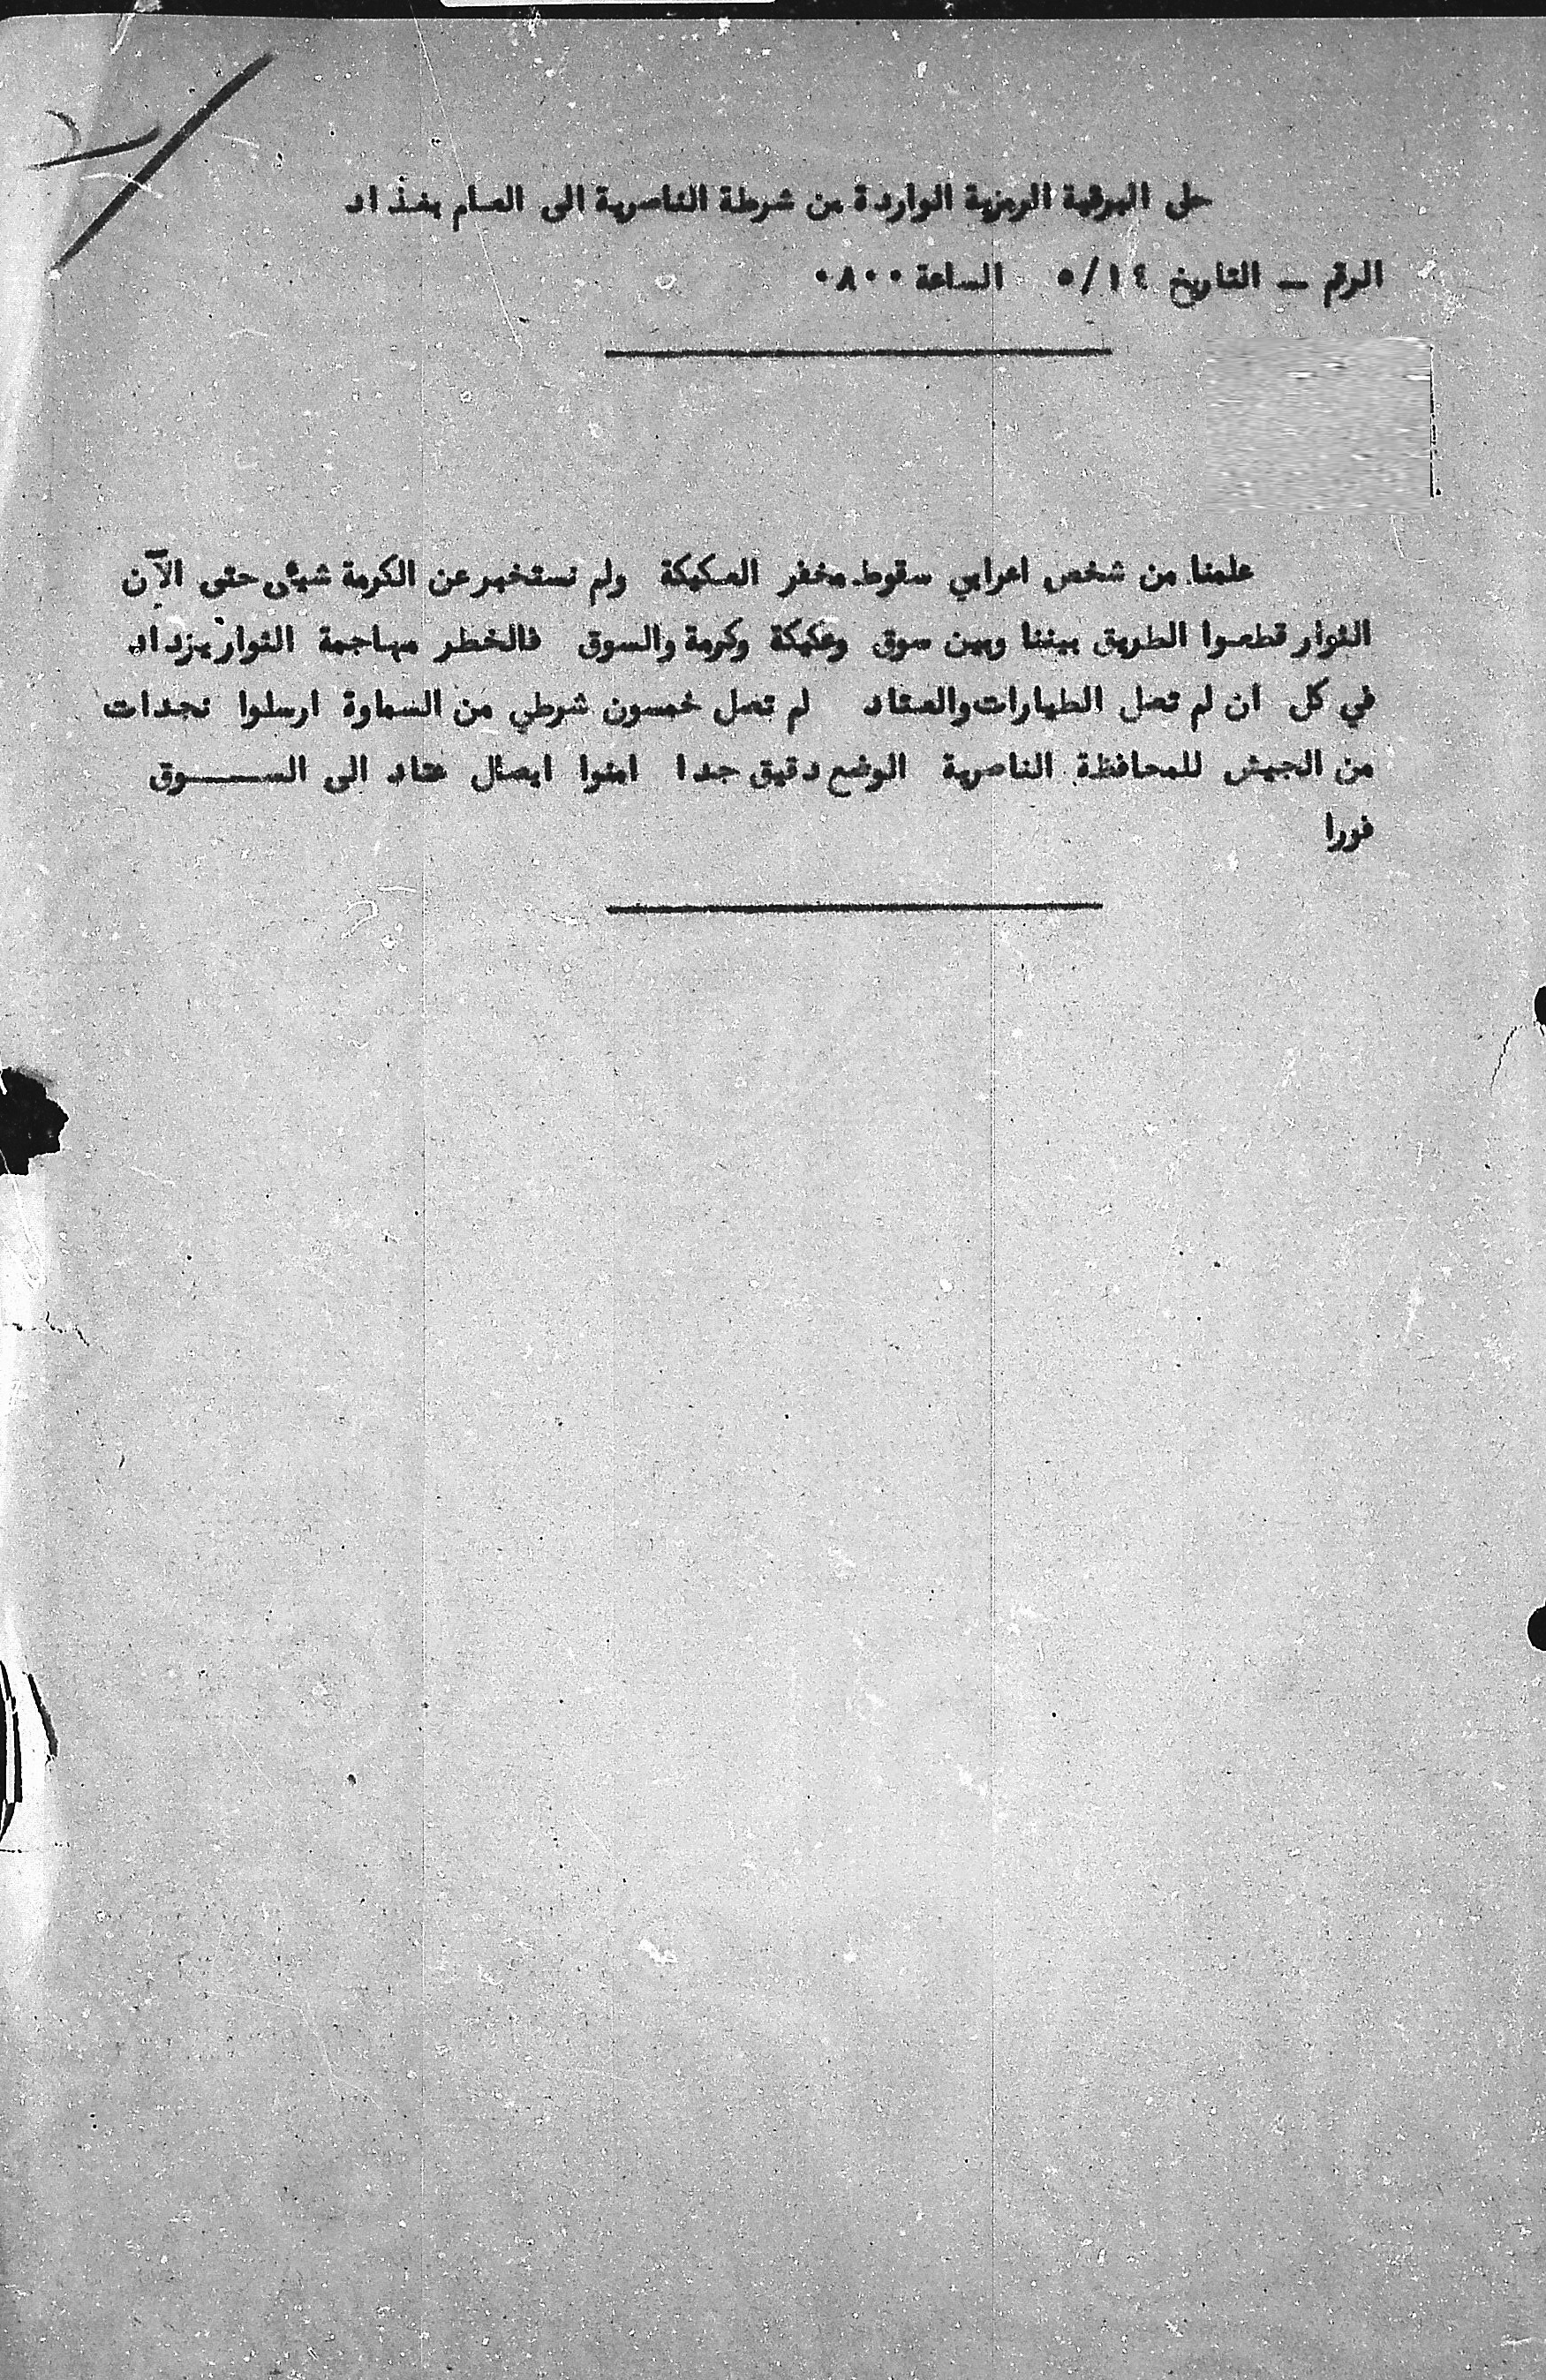 حل البرقية الرمزية الواردة من شرطة الناصرية الى العام بغداد
الرقم — التاريخ ١٤/٥ الساعة ٠٨٠٠
علمنا من شخص اعرابي سقوط مخفر العكيكة ولم نستخبر عن الكرمة شيئ حتى الآن
الثوار قطعوا الطريق بيننا وبين سوق وعكيكة وكرمة والسوق فالخطر مهاجمة الثوار يزداد
في كل ان لم تصل الطيارات والعتاد لم تصل خمسون شرطي من السماوة ارسلوا نجدات
من الجيش للمحافظة الناصرية الوضع دقيق جدا امنوا ايصال عتاد الى الســـوق
فورا